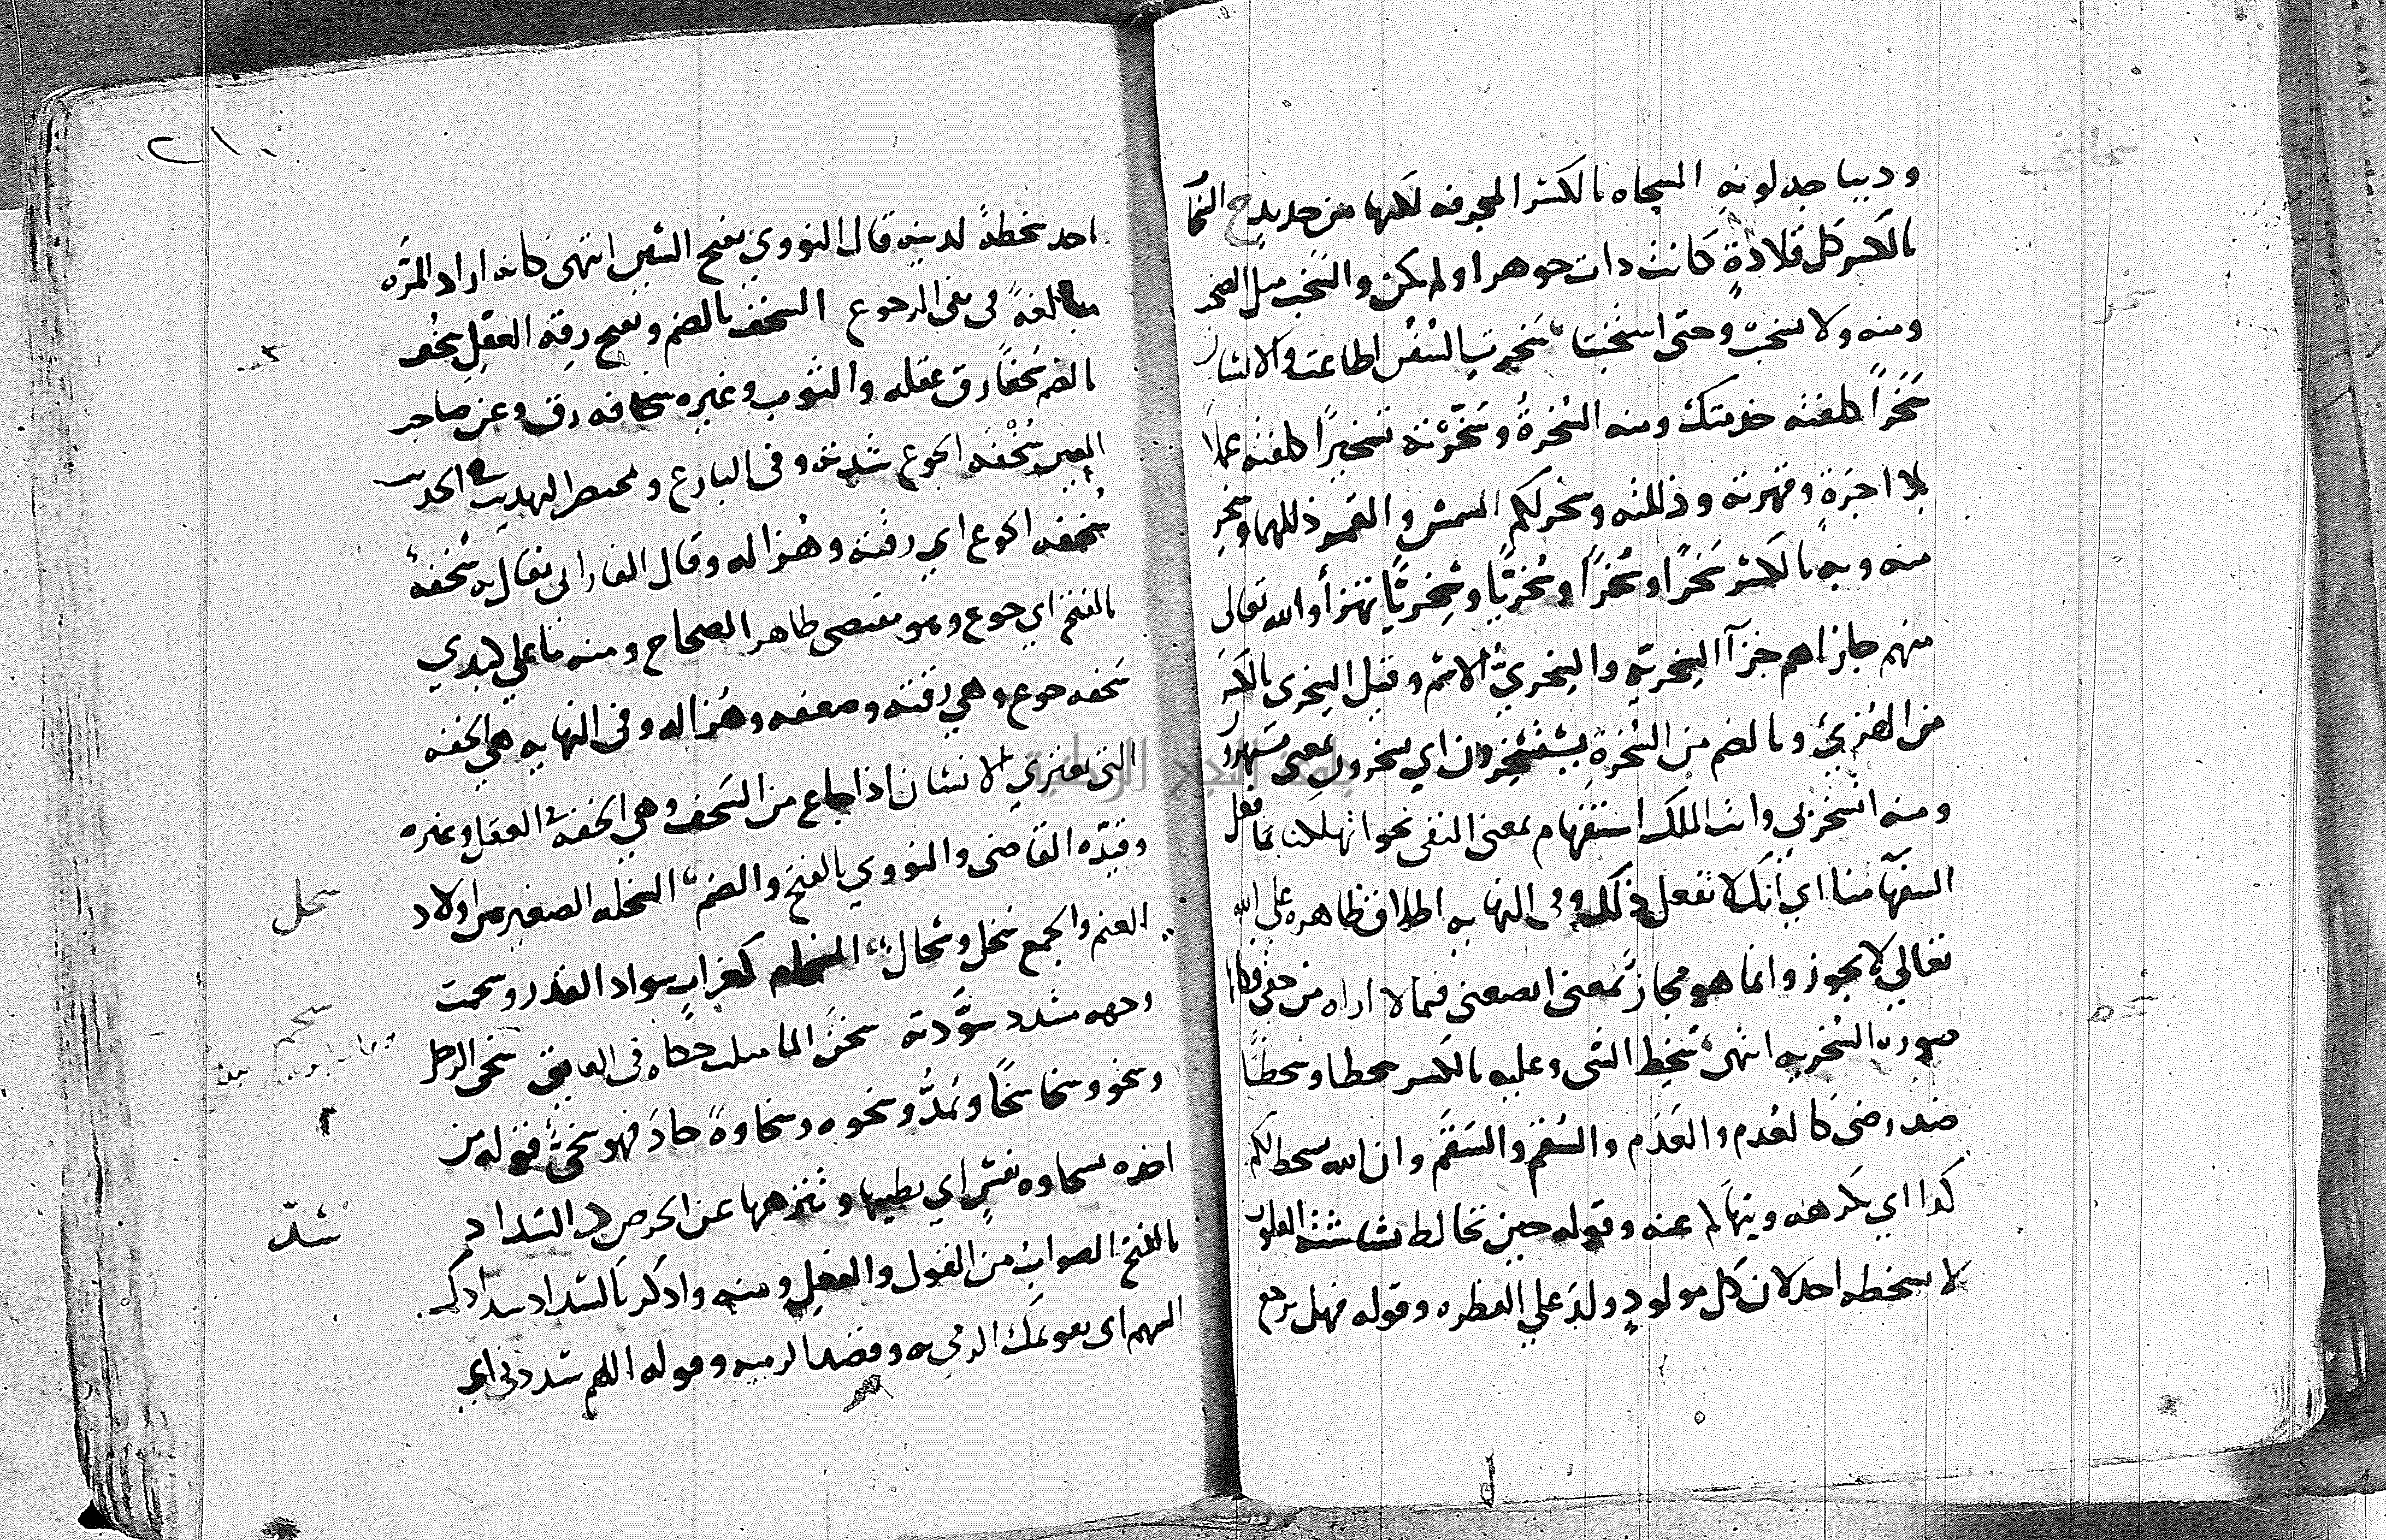 وديباجه لونه المسحاه بالكسر المجرفه لكنها من حديد ح السخا
بالكسر كل قلادة كانت ذات جوهر او لم يكن والسخب مثل الصخب
ومنه ولا سخب وحتى استخبت سخرت السفن اطاعت والانسان
سخرا كلفته خدمتك ومنه السخرة وسخرته تسخيرا كلفته عملا
بلا اجرة وقهرته وذللته وسخر لكم الشمس والقمر ذللهما وسخر
منه وبه بالكسر سخرا وسخرا وسخريا وسخريا تهزأ والله تعالى
منهم جازاهم جزآ السخرية والسخري الاسم وقيل السخرى بالكسر
من الهزئ وبالضم من السخرة يستسخرون اي يسخرون بمعنى
ومنه اتسخر بي وانت الملك استفهام بمعنى النفى نحو اتهلكنا بما فعل
السفهآ منا اي انك لا تفعل ذلك وفى النهايه اطلاق ظاهره على الله
تعالى لا يجوز وانما هو مجاز بمعنى اتضعنى فيما لا اراه من حقى فكانها
صورة السخريه انتهى سخط الشى وعليه بالكسر سخطا وسخطا
ضد رضى كالعدم والعدم والسقم والسقم وان الله سخط لكم
كذا اي يكرهه وينهاكم عنه وقوله حين تخالط بشاشته القلوب
لا يسخطه احد لان كل مولود ولد على الفطره وقوله فهل يرجع
٢١٠
احد سخطة لدينه قال النووي بفتح السين انتهى كانه اراد المرة
مبالغة فى نفى الرجوع السخف بالضم وبفتح رقة العقل سخف
بالضم سخفا رق عقله والثوب وغيره سخافه رق وعن صاحب
العين سخفه الجوع شدته وفى البارع ومختصر الهديب فى الحديث
سخفه الجوع اي رقته وهزاله وقال الفارابى يقال به سخفة
بالفتح اي جوع وهو مقتضى ظاهر الصحاح ومنه ما على كبدي
سخفه جوع وهي رقته وضعفه وهزاله وفى النهايه هي الخفه
التى تعتري الانسان اذا جاع من السخف وهي الخفة فى العقل وغيره
وقيده القاضى والنووي بالفتح والضم السخله الصغير من اولاد
سخل
الغنم والجمع سخل وسخال السخام كغراب سواد القدر وسخمت
سخم
وجهه مشدد سودته سخن الما مثلث حكاه فى الفايق سخى الرجل
وسخو وسخا سخا ويمد وسخوه وسخاوة جاد فهو سخى فقوله من
اخذه بسخاوه نفس اي بطيبها وتنزهها عن الحرص د السداد
سد
بالفتح الصواب من القول والفعل ومنه واذكر بالسداد سدادك
السهم اى تقويمك الرمى به وقصد الرميه وقوله اللهم سددنى اي
سخر
سخط